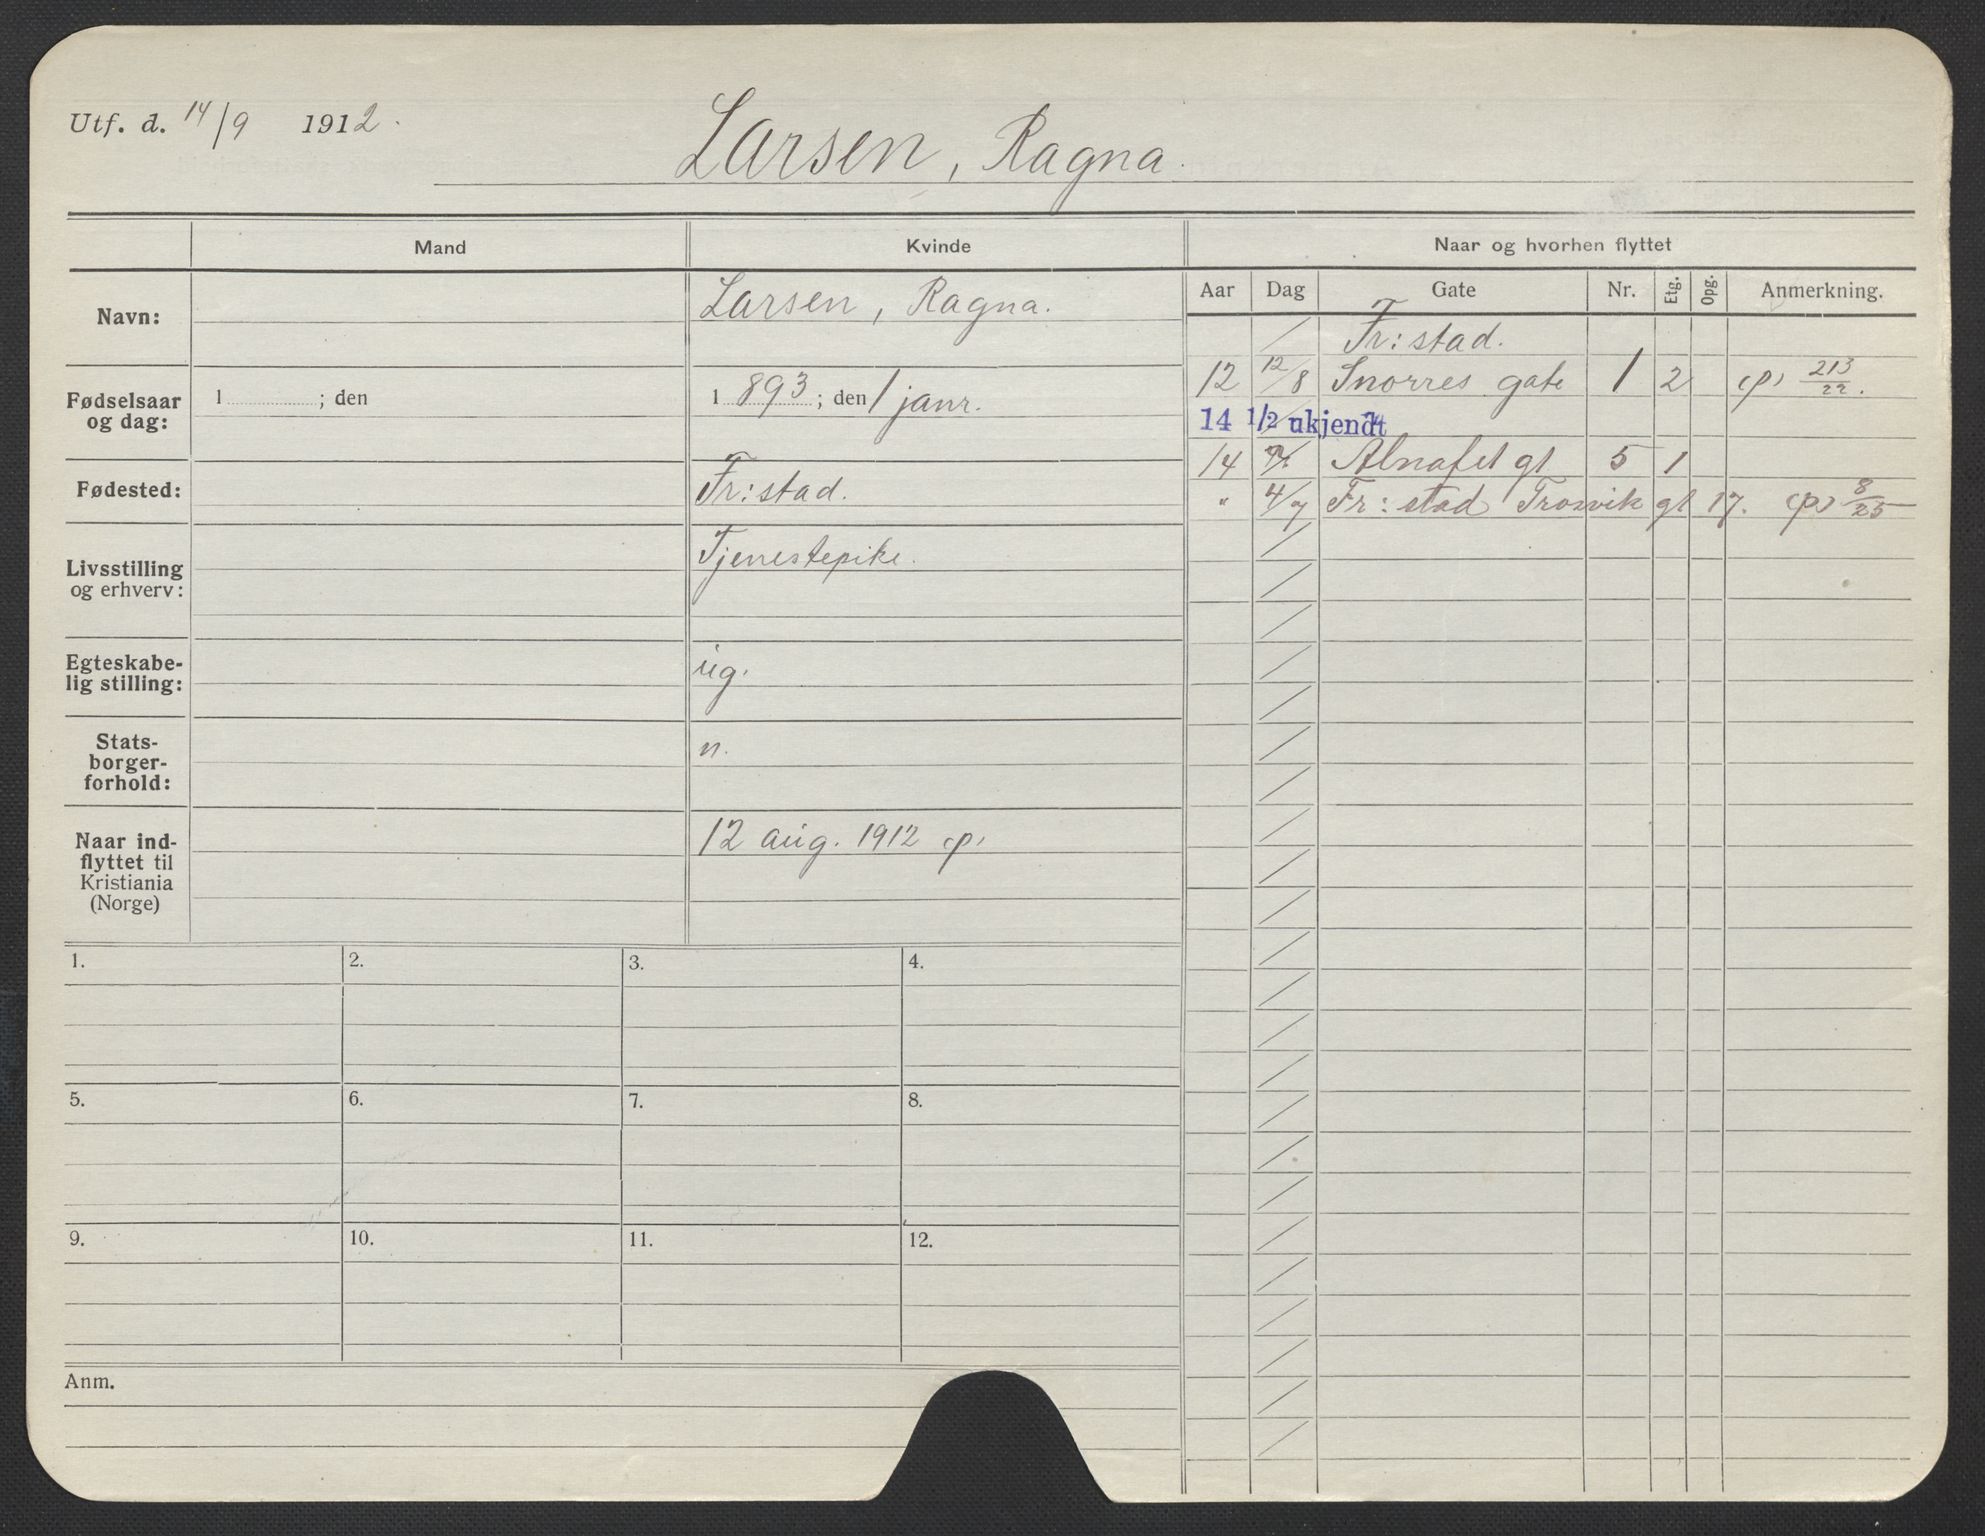 Utf. d. 14/9 1912.
Larsen, Ragna.
Mand
Kvinde
Naar og hvorhen flyttet
Aar Dag Gate Nr. Etg. Opg. Anmerkning.
Navn:
Larsen, Ragna.
Fr:stad.
12 12/8 Snorres gate 1 2 (p) 213/22.
Fødselsaar og dag:
1 ; den
1 893 ; den 1 janr.
14 1/2 ukjendt
14 Alnafet gt 5 1
" 4/7 Fr: stad Trosvik gt 17. (p) 8/25
Fødested:
Fr:stad.
Livsstilling
og erhverv:
Tjenestepike.
Egteskabe-
lig stilling:
ug.
Stats-
borger-
forhold:
n.
Naar ind-
flyttet til
Kristiania
(Norge)
12 aug. 1912 (p)
1. 2. 3. 4.
5. 6. 7. 8.
9. 10. 11. 12.
Anm.